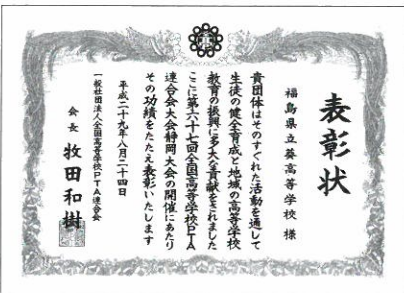 表彰状
福島県立葵高等学校 様
貴団体はそのすぐれた活動を通して
生徒の健全育成と地域の高等学校
教育の振興に多大な貢献をされました
ここに第六十七回全国高等学校PTA
連合会大会静岡大会の開催にあたり
その功績をたたえ表彰いたします
平成二十九年八月二十四日
一般社団法人全国高等学校PTA連合会
会長 牧田和樹